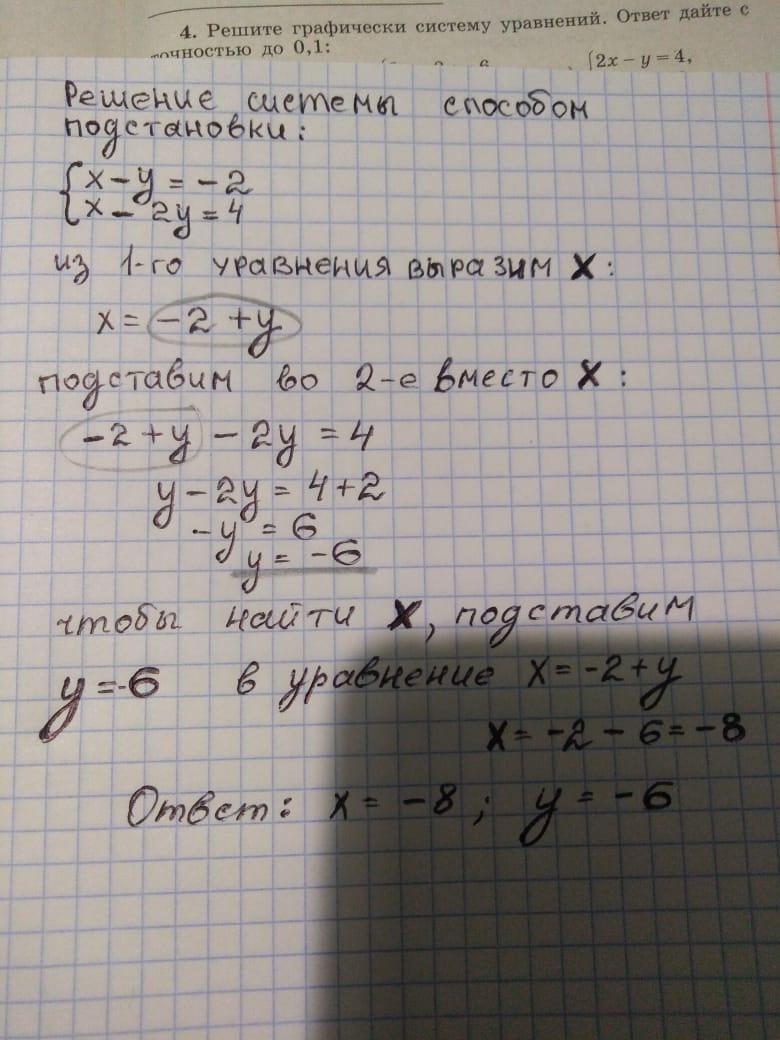 4. Решите графически систему уравнений. Ответ дайте с
точностью до 0,1:
2x − y = 4,
Решение системы способом
подстановки:
x − y = −2
x − 2y = 4
из 1-го уравнения выразим x:
x = −2 + y
подставим во 2-е вместо x:
−2 + y − 2y = 4
y − 2y = 4 + 2
−y = 6
y = −6
чтобы найти x, подставим
y = −6 в уравнение x = −2 + y
x = −2 − 6 = −8
Ответ: x = −8; y = −6